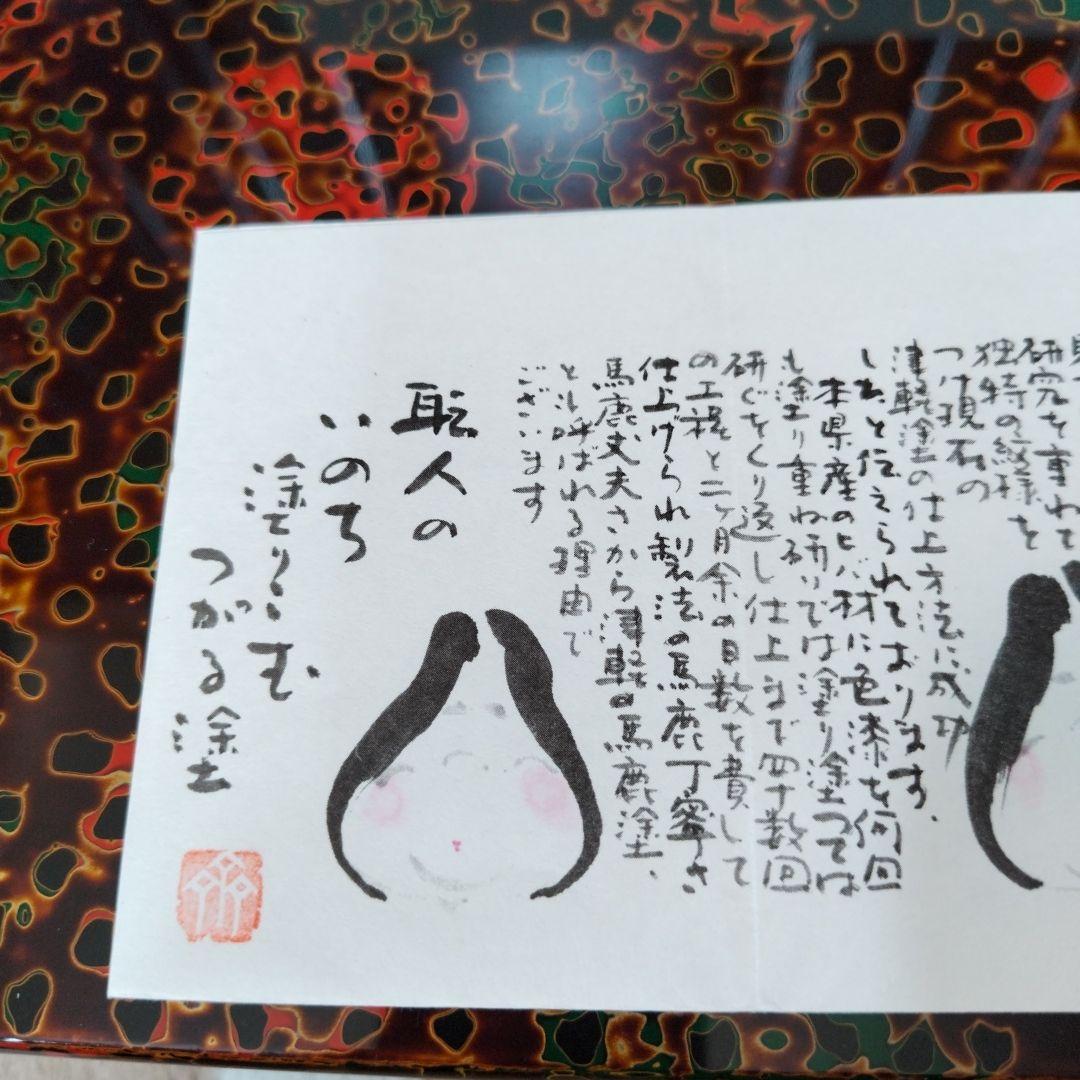 研究を重ねて
独特の紋様を
つけ現在の
津軽塗の仕上方法に成功
したと伝えられております。
本県産のヒバ材に色漆を何回
も塗り重ね研いでは塗り塗っては
研ぐをくり返し仕上まで四十数回
の工程と二ヶ月余の日数を費して
仕上げられ製法の馬鹿丁寧さ
馬鹿丈夫さから津軽の馬鹿塗、
と呼ばれる理由で
ございます
職人の
いのち
塗りこむ
つがる塗